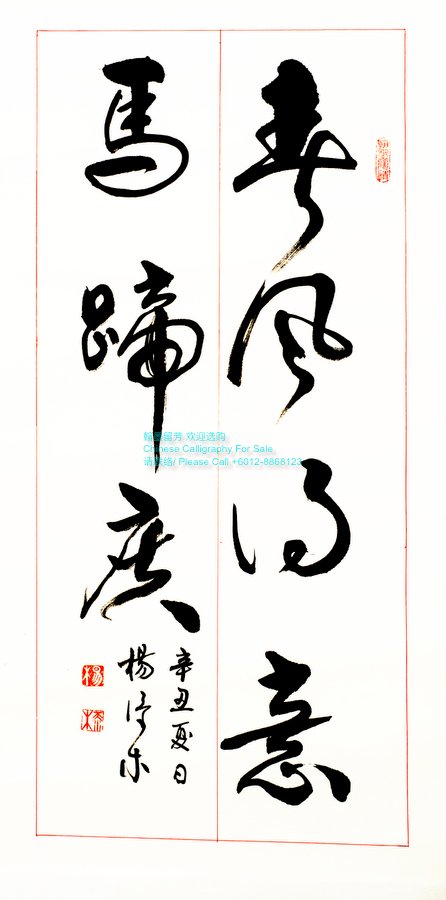 春风得意
馬蹄疾
辛丑夏日
楊
翰墨留芳 欢迎选购
Chinese Calligraphy For Sale
请联络/ Please Call +6012-8868123
楊